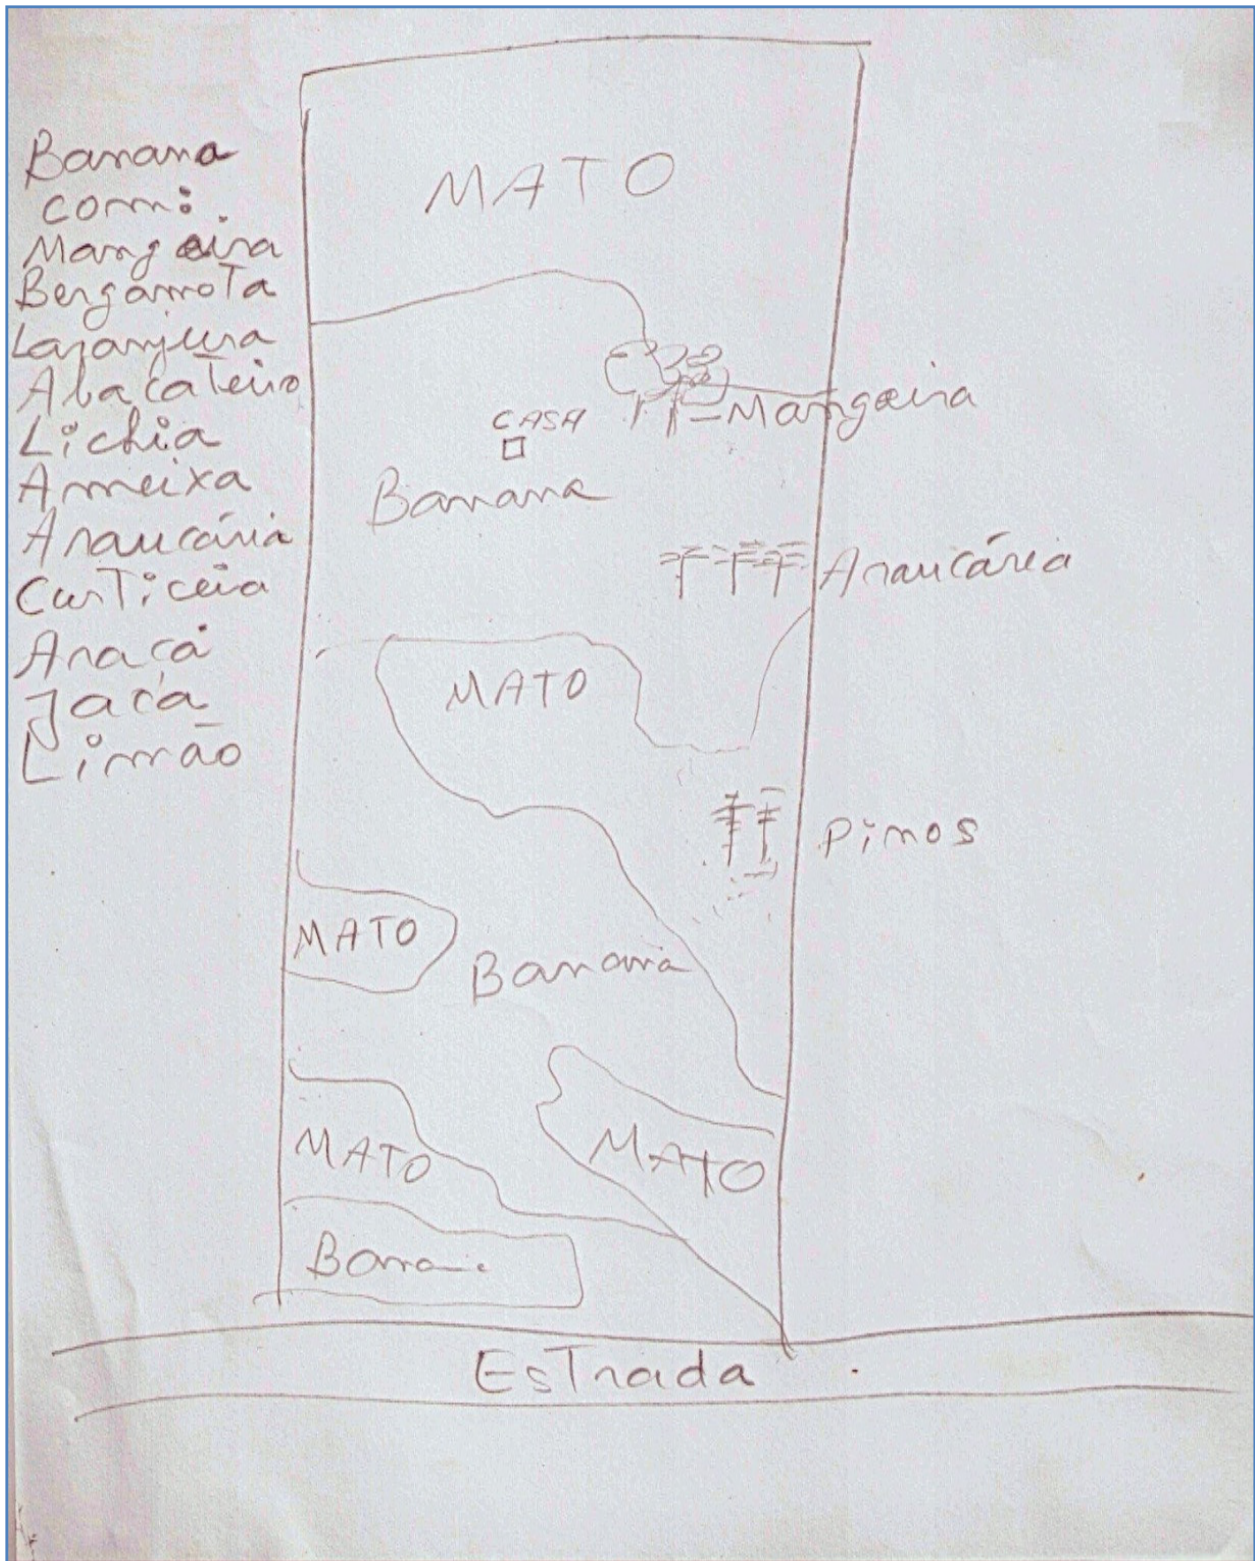 Banana
com:
Mangeira
Bergamota
Laranjeira
Abacateiro
Lichia
Ameixa
Araucária
Curticeia
Araçá
Jaca
Limão
MATO
Mangeira
CASA
Banana
Araucária
MATO
Pinos
MATO
Banana
MATO
MATO
Banana
Estrada